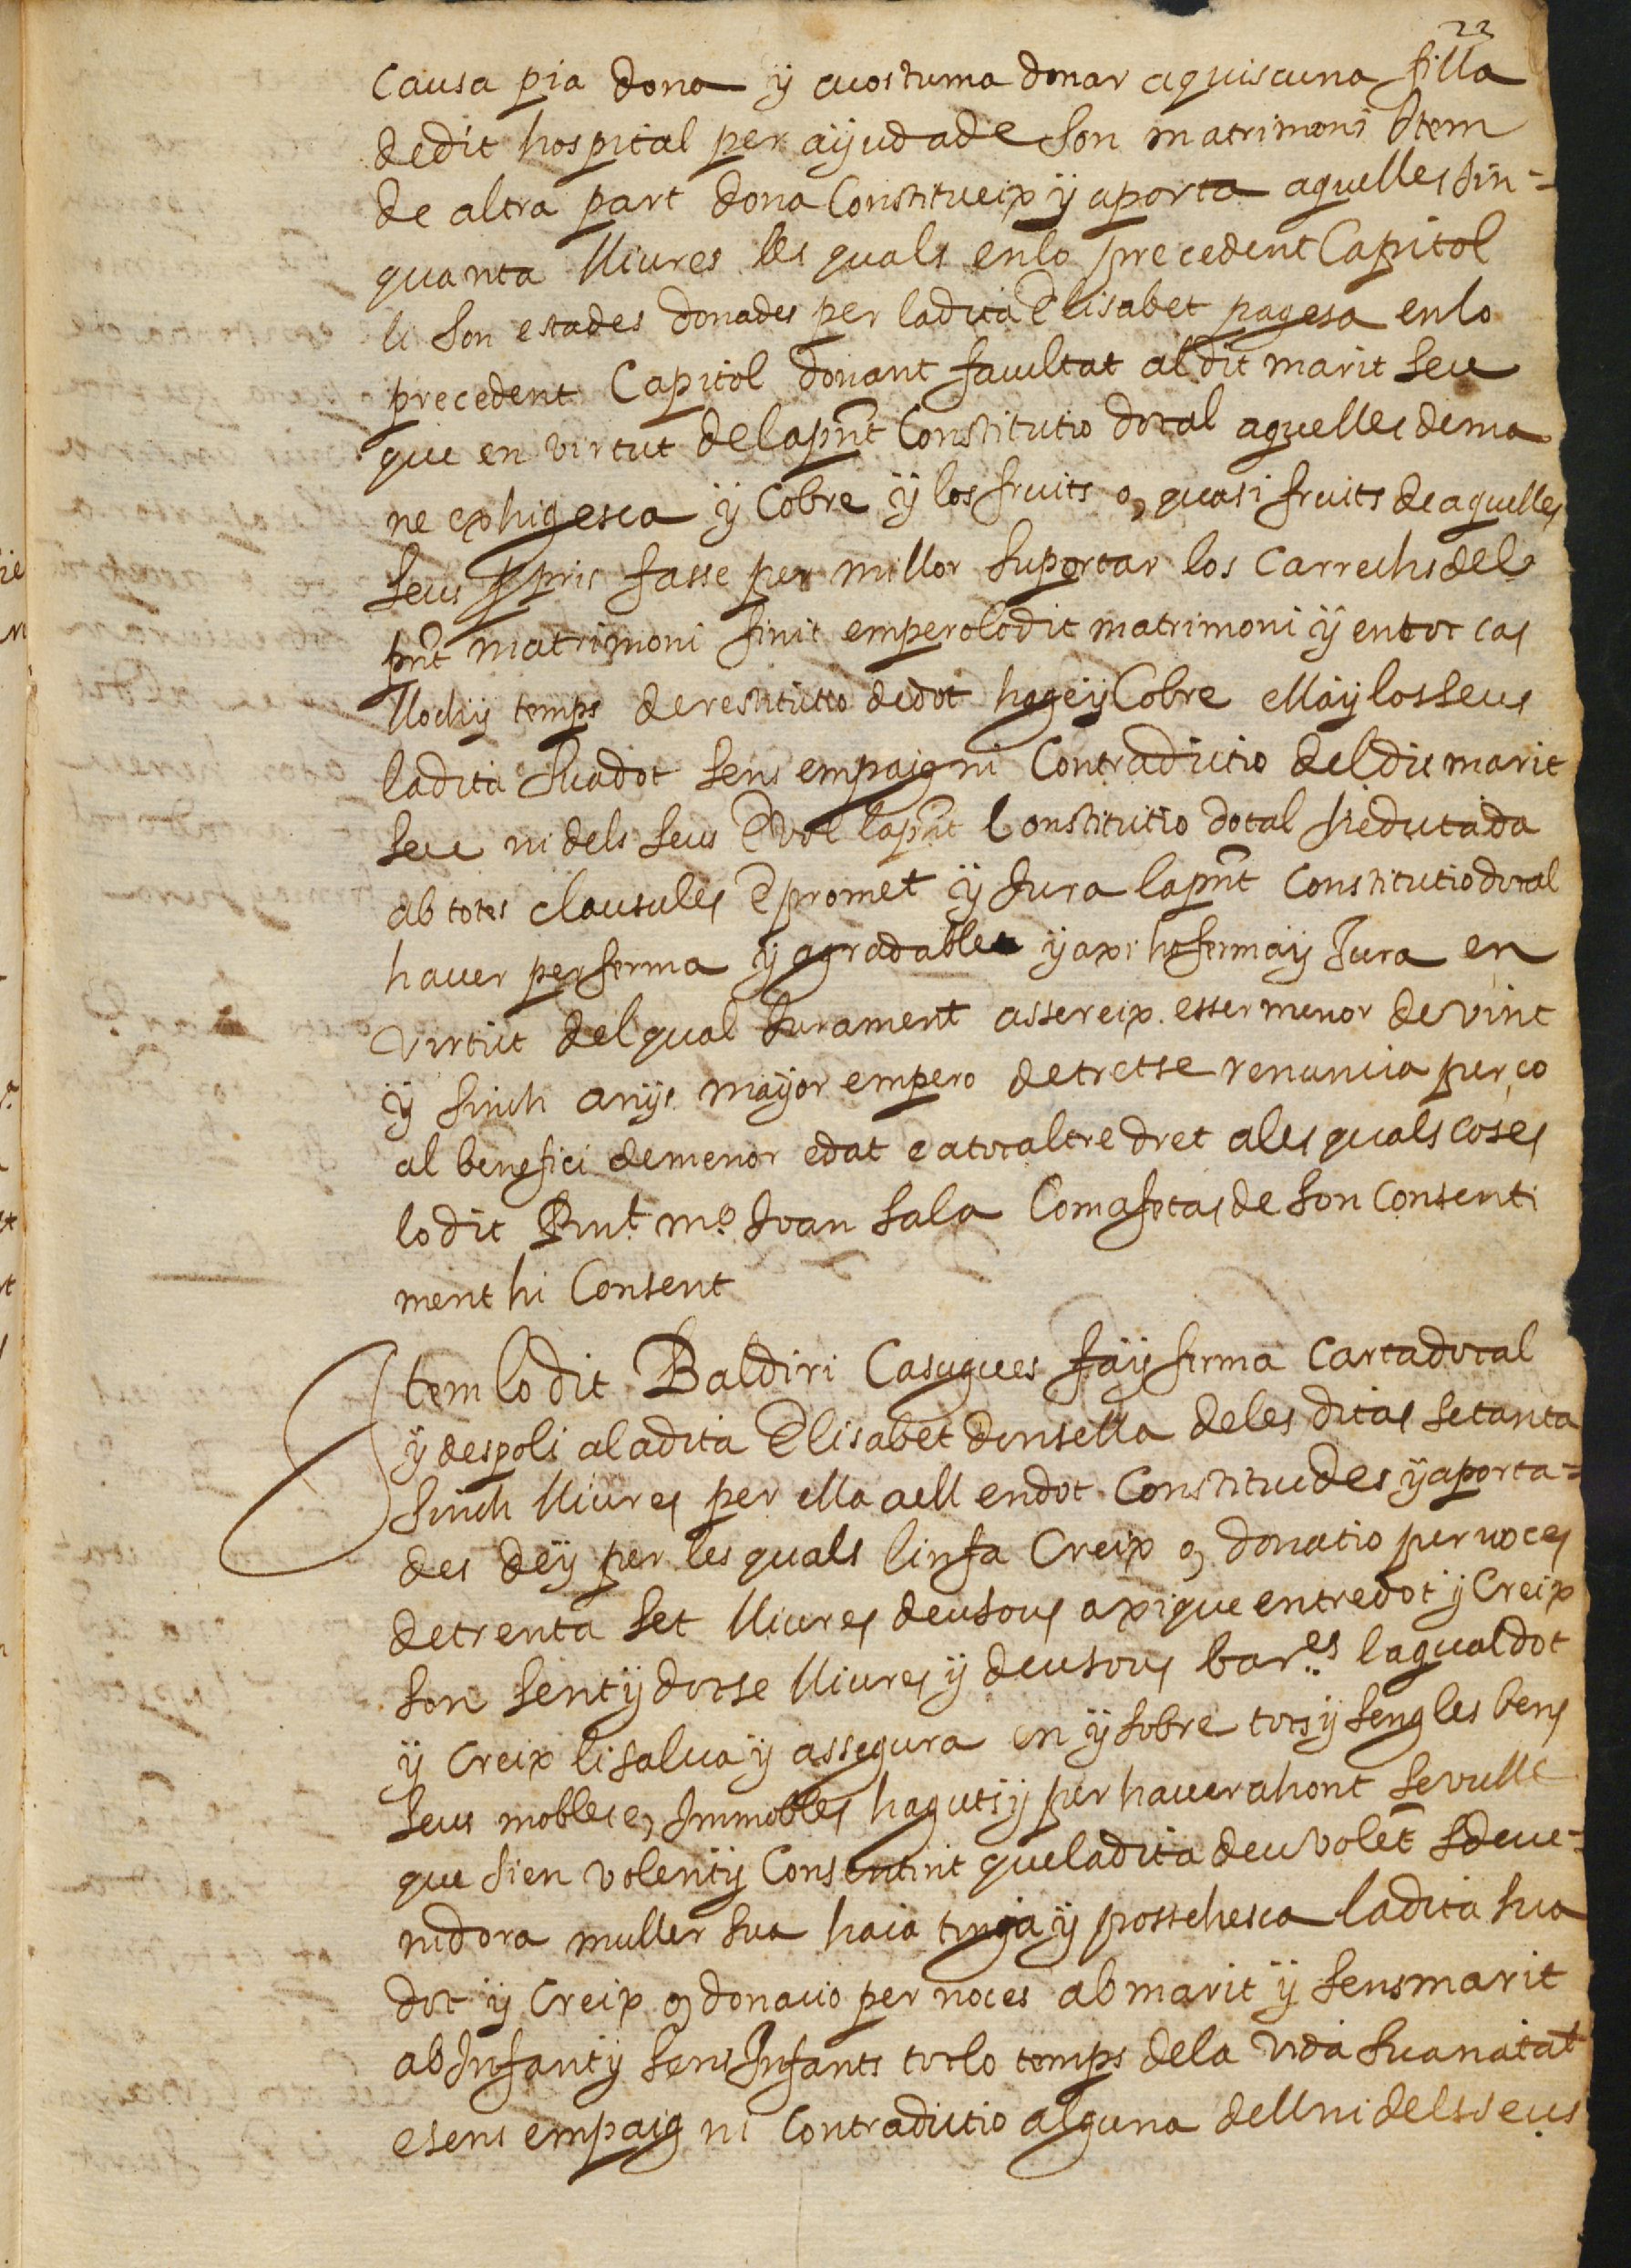 22
Causa pia dona ÿ acostuma donar aquiscuna filla
dedit hospital per aÿudade son matrimoni Item
de altra part dona Constitueix ÿ aporta aquelles sin=
quanta lliures les quals enlo precedent Capitol
li son estades donades per ladita Elisabet pagesa enlo
precedent Capitol donant facultat aldit marit seu
que en virtut delapnt Constitutio dotal aquelles dema
ne exhigesca ÿ Cobre ÿ los fruits o, quasi fruits deaquelles
seus ppris fasse per millor suportar los Carrechs del
pnt matrimoni finit emperolodit matrimoni ÿ entot cas
lloch ÿ temps derestitutio dedot hage ÿ Cobre ella ÿ losseus
ladita suadot sens empaig ni Contradictio deldit marit
seu ni dels seus E vol lapnt Constitutio dotal sie dutada
ab totes clausules E promet ÿ Jura lapnt Constitutiodotal
hauer perferma ÿ agradable ÿ axi hoferma ÿ Jura en
Virtut delqual Jurament assereix esser menor de vint
ÿ sinch anÿs maÿor empero detretse renuncia perço
al benefici demenor edat e atotaltre dret ales quals coses
lodit Rnt. mo. Joan Sala Comafetas de son Consenti
ment hi Consent
Item lo dit Baldiri Casugues fa ÿ firma Cartadotal
ÿ despoli aladita Elisabet donsella deles ditas setanta
sinch lliures per ella aell endot Constituides ÿ aporta=
des deÿ per les quals linfa Creix o, donatio per noces
detrenta set lliures deusous axi que entredot ÿ Creix
son sent ÿ dotse lliures ÿ deusous bar.es laqualdot
ÿ Creix lisalua ÿ assegura en ÿ sobre tots ÿ sengles bens
seus mobles e, Immobles haguts ÿ per hauer ahont sevulle
que sien volent ÿ Consentint queladita deuvolet sdeue=
nidora muller sua haia tinga ÿ possehesca ladita sua
dot ÿ Creix o, donacio per noces ab marit ÿ sensmarit
ab Infants ÿ sens Infants totlo temps dela vida suanatal
esens empaig ni Contradictio alguna dell ni delsseus